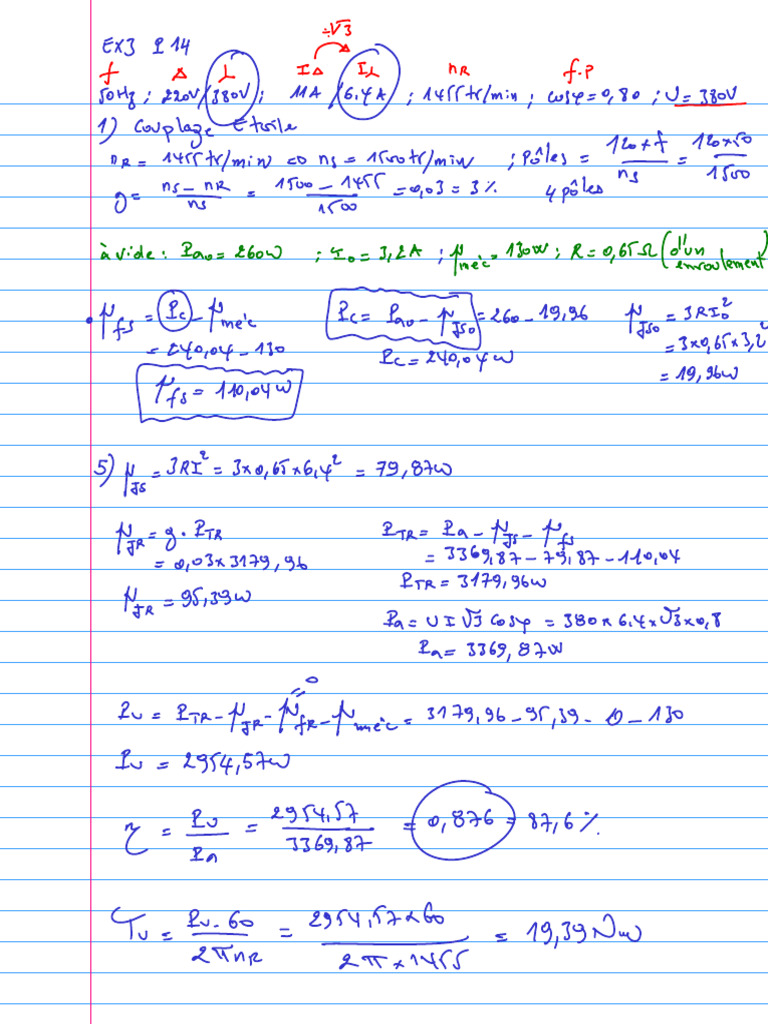 EX3 P 14
÷√3
f Δ Y IΔ IY nR f.P
50Hz ; 220V/380V ; 11A/6.4A ; 1455tr/min ; cosφ=0,80 ; U=380V
1) Couplage Etoile
nR = 1455tr/min => ns = 1500tr/min ; Pôles = 120×f/ns = 120×50/1500
g = (ns - nR)/ns = (1500 - 1455)/1500 = 0,03 = 3% 4 pôles
à vide : Pa0 = 260W ; I0 = 3,2A ; pméc = 130W ; R = 0,65Ω (d'un enroulement)
• pfs = Pc - pméc Pc = Pa0 - pJs0 = 260 - 19,96 pJs0 = 3RI0²
= 240,04 - 130 Pc = 240,04W = 3×0,65×3,2²
pfs = 110,04W = 19,96W
5) pJs = 3RI² = 3×0,65×6,4² = 79,87W
pJR = g . PTR PTR = Pa - pJs - pfs
= 0,03×3179,96 = 3369,87 - 79,87 - 110,04
pJR = 95,39W PTR = 3179,96W
Pa = UI√3 cosφ = 380×6.4×√3×0,8
Pa = 3369,87W
= 0
Pu = PTR - pJR - pfR - pméc = 3179,96 - 95,39 - 0 - 130
Pu = 2954,57W
η = Pu/Pa = 2954,57/3369,87 = 0,876 = 87,6%
Tu = Pu.60/2πnR = 2954,57×60/2π×1455 = 19,39Nm